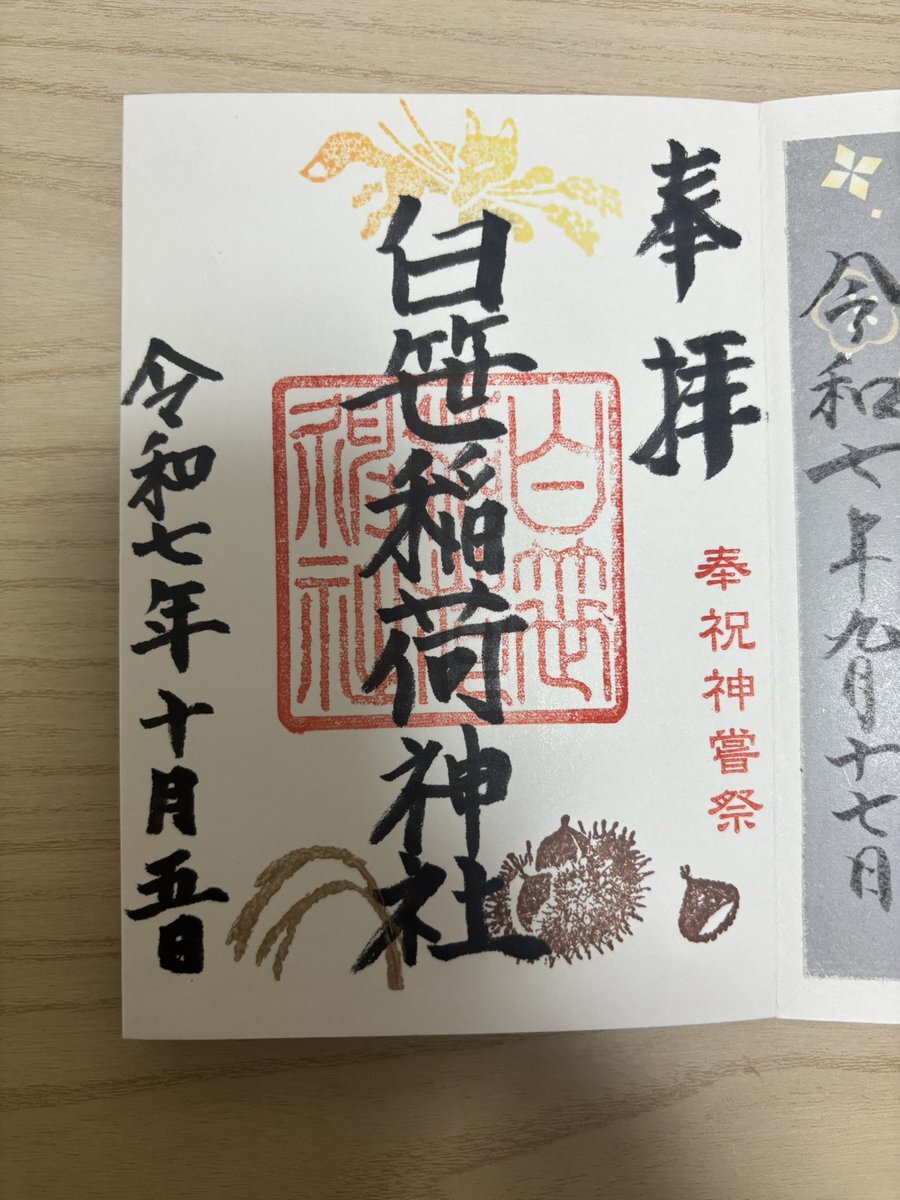 令和七年九月十七日
奉拝
奉祝神嘗祭
白笹稲荷神社
白笹
稲荷
神社
令和七年十月五日